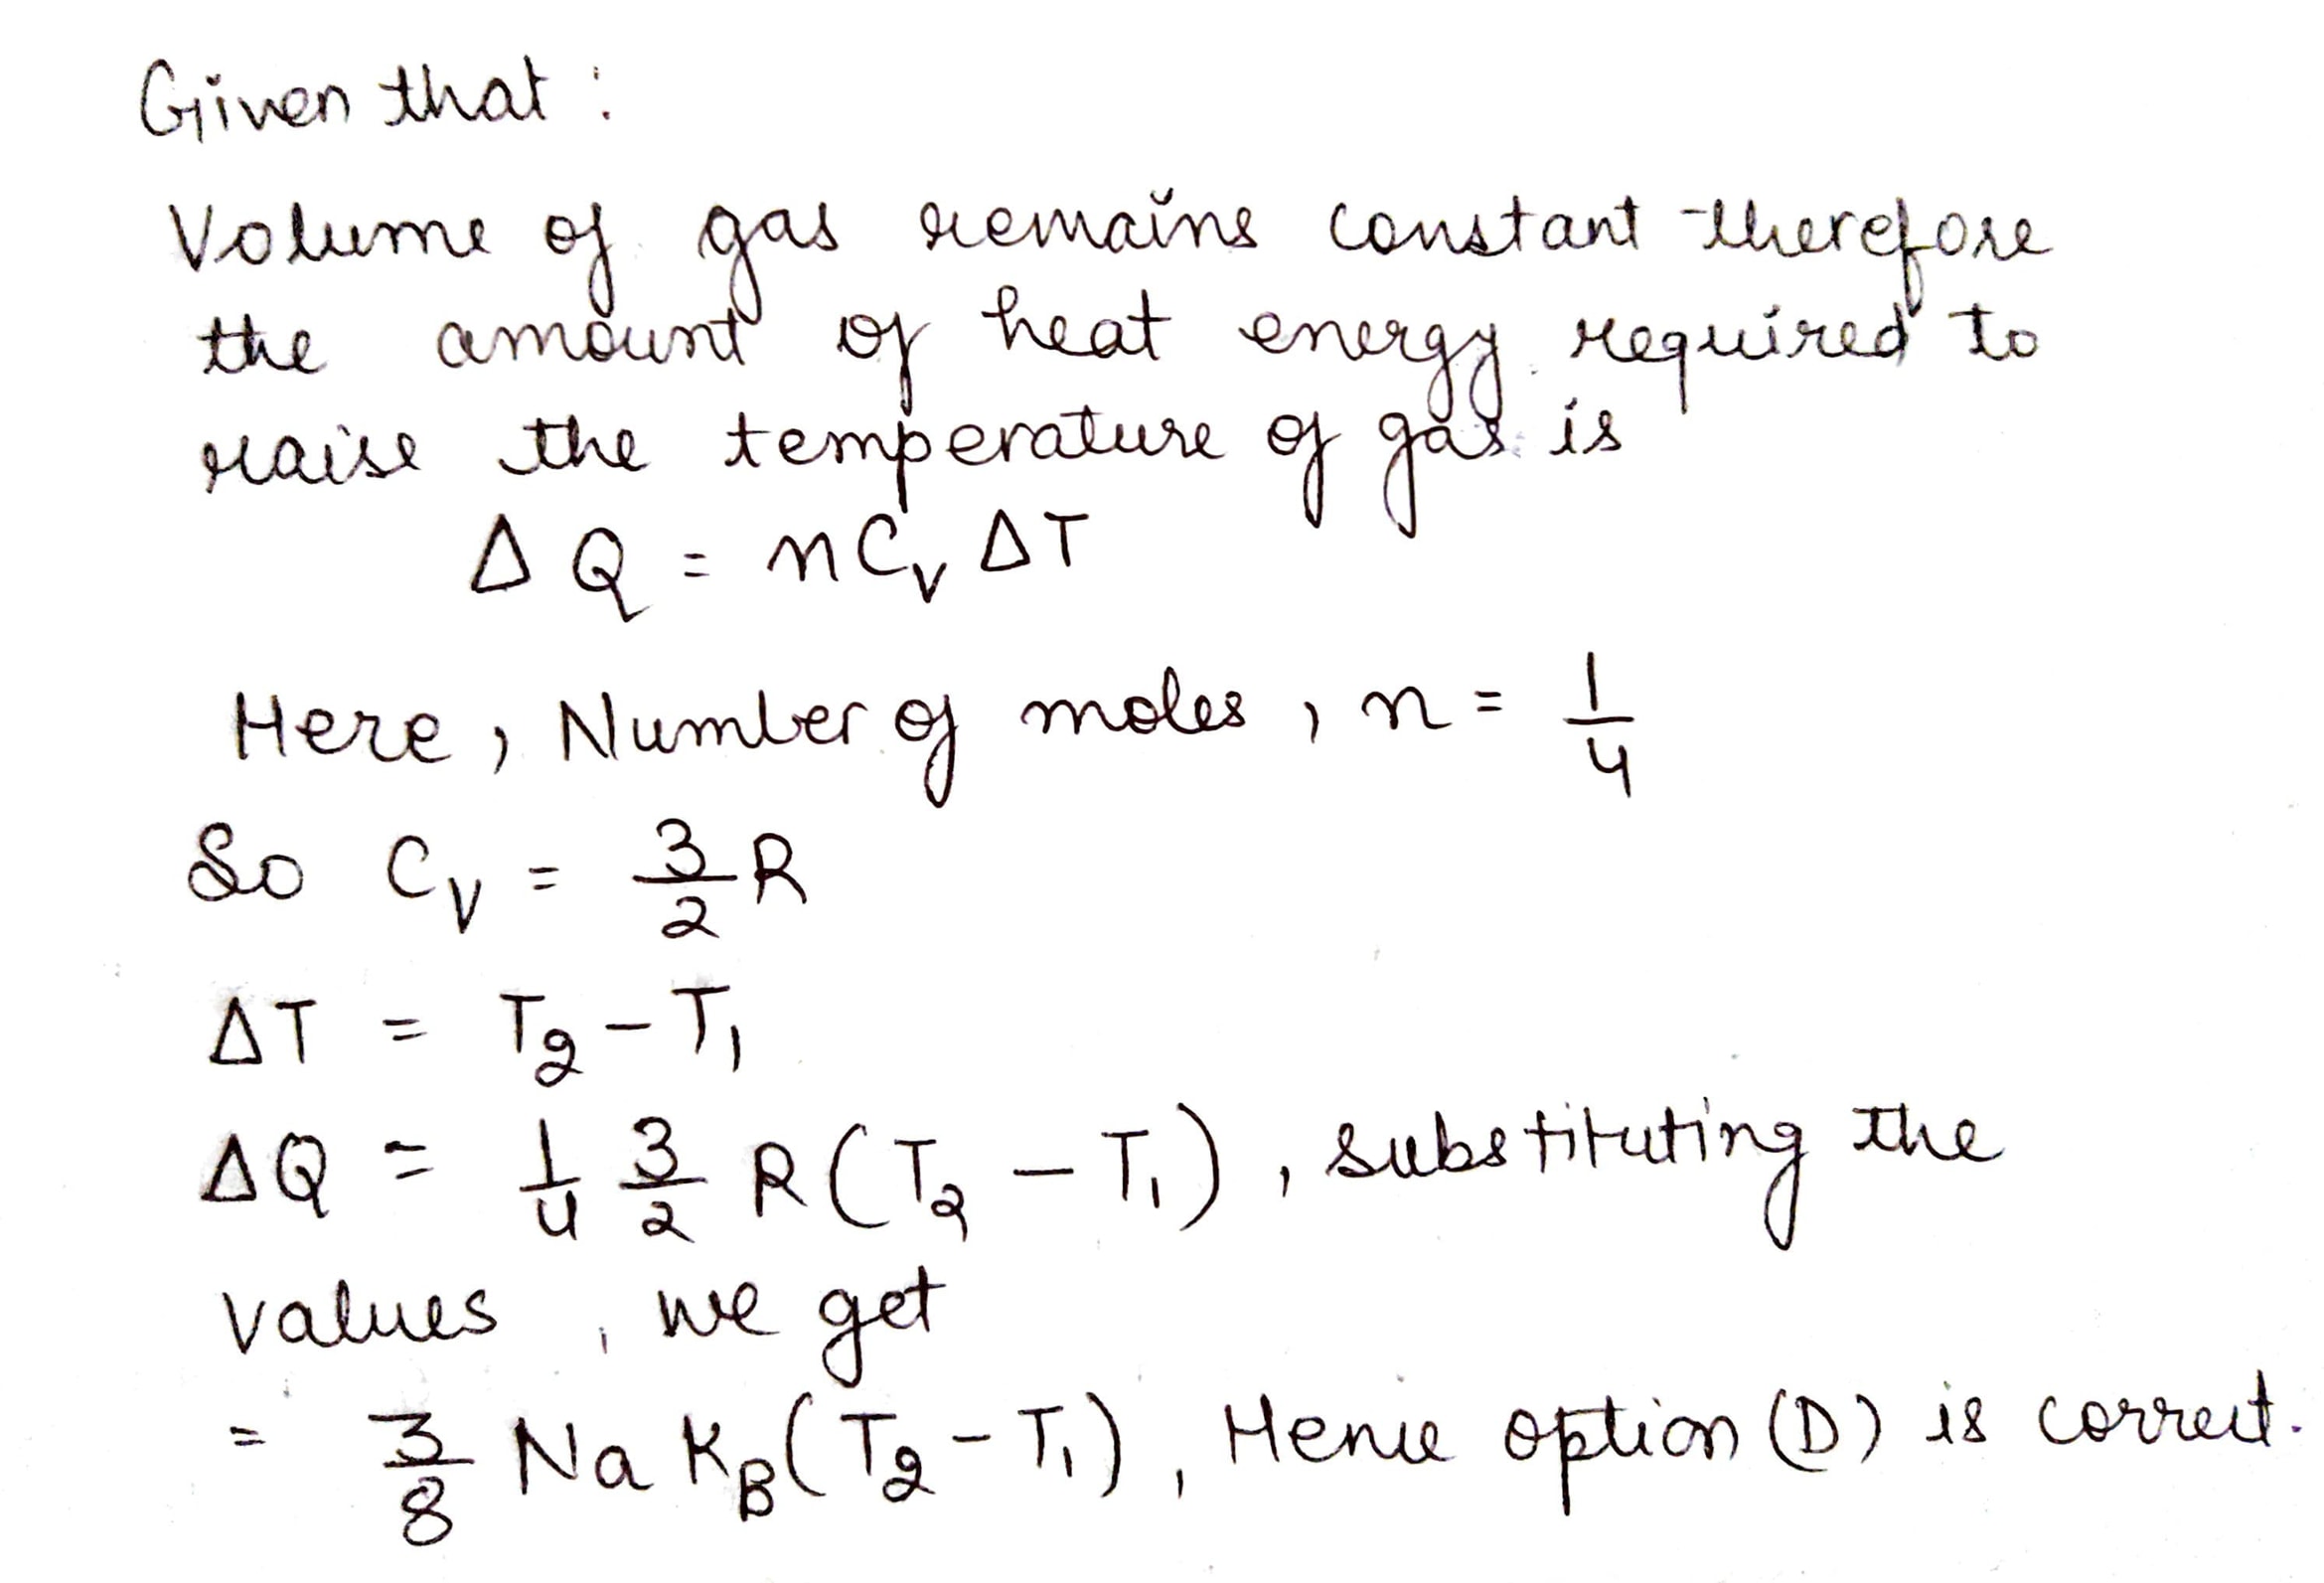 Given that :
Volume of gas remains constant therefore
the amount of heat energy required to
raise the temperature of gas is
Δ Q = nCᵥ ΔT
Here, Number of moles, n = 1/4
So Cᵥ = 3/2 R
ΔT = T₂ - T₁
ΔQ = 1/4 3/2 R (T₂ - T₁), substituting the
values, we get
= 3/8 Na K_B (T₂ - T₁), Hence option (D) is correct.